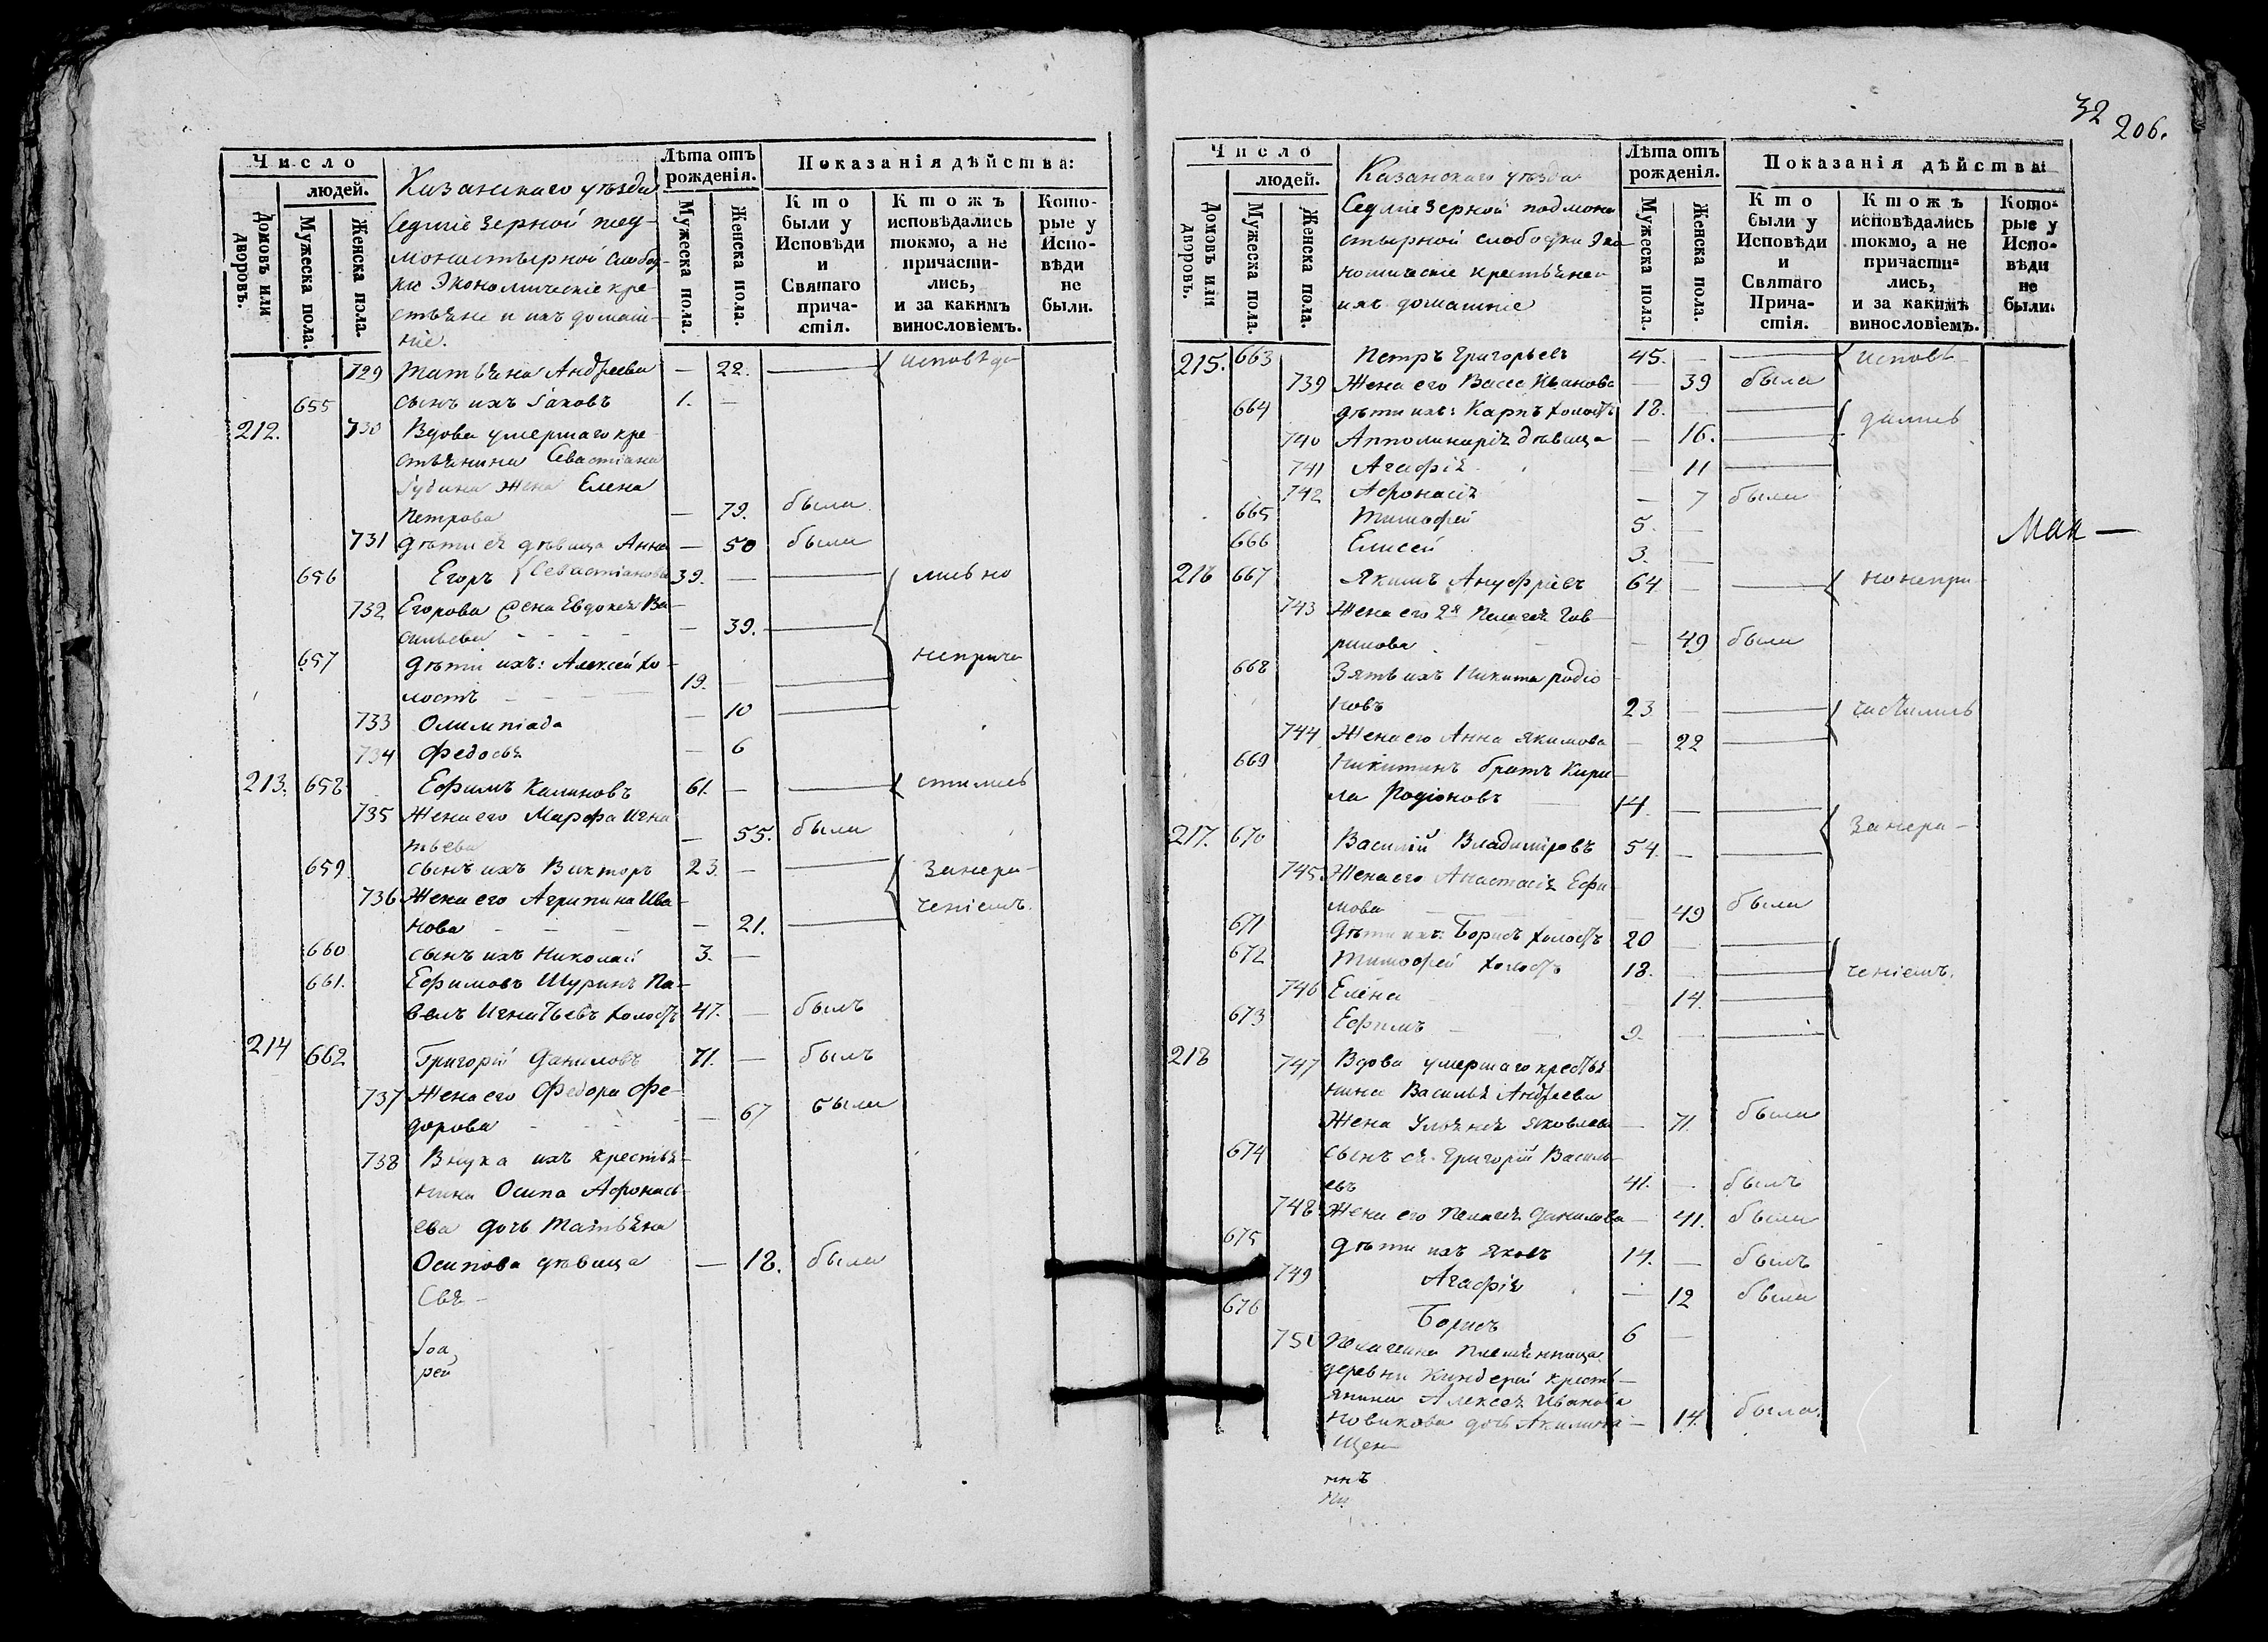 32 206.
Число
людей.
Домовъ или дворовъ.
Мужеска пола.
Женска пола.
Казанскаго уѣзда
Седміезерной под-
монастырной слобод-
ки Экономическіе кре-
стьяне и ихъ домаш-
ніе.
Лѣта отъ рожденія.
Мужеска пола.
Женска пола.
Показанія дѣйства:
Кто были у Исповѣди и Святаго прича-стія.
Ктожъ исповѣдались токмо, а не причасти-лись, и за какимъ винословіемъ.
Кото-рые у Испо-вѣди не были.
729 Татьяна Андреева — 22. исповѣда
655 сынъ ихъ Іаковъ 1. —
212. 730 Вдова умершаго кре-
стьянина Севастіана
Жена Елена
Петрова — 79. была
731 дѣти ея дѣвица Анна — 50 была
656 Егоръ Севастіановы 39. — лись но
732 Егорова жена Евдокея Ва-
сильева — 39.
657 дѣти ихъ: Алексей хо- неприча
лостъ 19. —
733 Олимпіада — 10
734 Федосья — 6
213. 658 Ефимъ Калиновъ 61. — стились
735 Жена его Марфа Игна
тьева — 55. была
659 сынъ ихъ Викторъ 23. — занера-
736 Жена его Агрипина Ива- ченіемъ.
нова — 21.
660 сынъ ихъ Николай 3. —
661. Ефимовъ Шуринъ Па-
велъ Игнатьевъ холостъ 47. — былъ
214 662 Григорій Даниловъ 71. — былъ
737 Жена его Федора Фе-
дорова — 67 была
738 Внука ихъ крестья-
нина Осипа Афонась
ева дочь Татьяна
Осипова дѣвица — 18. была
Свя-
рей
Число
людей.
Домовъ или дворовъ.
Мужеска пола.
Женска пола.
Казанскаго уѣзда
Седміезерной подмона
стырной слободки Эко
номическіе крестьяне и
ихъ домашніе
Лѣта отъ рожденія.
Мужеска пола.
Женска пола.
Показанія дѣйства
Кто были у Исповѣди и Святаго Прича-стія.
Ктожъ исповѣдались токмо, а не причасти-лись, и за какимъ винословіемъ.
Кото-рые у Испо-вѣди не были.
215. 663 Петръ Григорьевъ 45. — исповѣ-
739 Жена его Васса Иванова — 39 была
664 дѣти ихъ: Карпъ холостъ 18. — дались
740 Апполинарія дѣвица — 16.
741 Агафія — 11
742 Афонасія — 7 была
665 Тимофей 5. —
666 Елисей 3. —
Мак —
216 667 Якимъ Ануфріевъ 64 — но непри-
743 Жена его 2я Пелагея Гав-
рилова — 49 была
668 Зять ихъ Никита Родіо
новъ 23. — частились
744 Жена его Анна Якимова — 22
669 Никитинъ братъ Кири-
ла Родіоновъ 14. —
217. 670 Василій Владиміровъ 54. — занера-
745 Жена его Анастасія Ефи
мова — 49 была
671 Дѣти ихъ: Борисъ холостъ 20 —
672 Тимофей холостъ 18. — ченіемъ.
746 Елена — 14.
673 Ефимъ 9. —
218 747 Вдова умершаго крестья
нина Василья Андреева
Жена Ульяна Яковлева — 71. была
674 сынъ ея Григорій Василь-
евъ 41. — былъ
748 Жена его Пелагея Данилова — 41. была
675 дѣти ихъ Яковъ 14. — былъ
749 Агафія — 12 была
676 Борисъ 6 —
750 Пелагеина племянница
деревни Киндерей крестья-
янина Алексея Иванова
Новикова дочь Акилина — 14. была.
Щен-
никъ